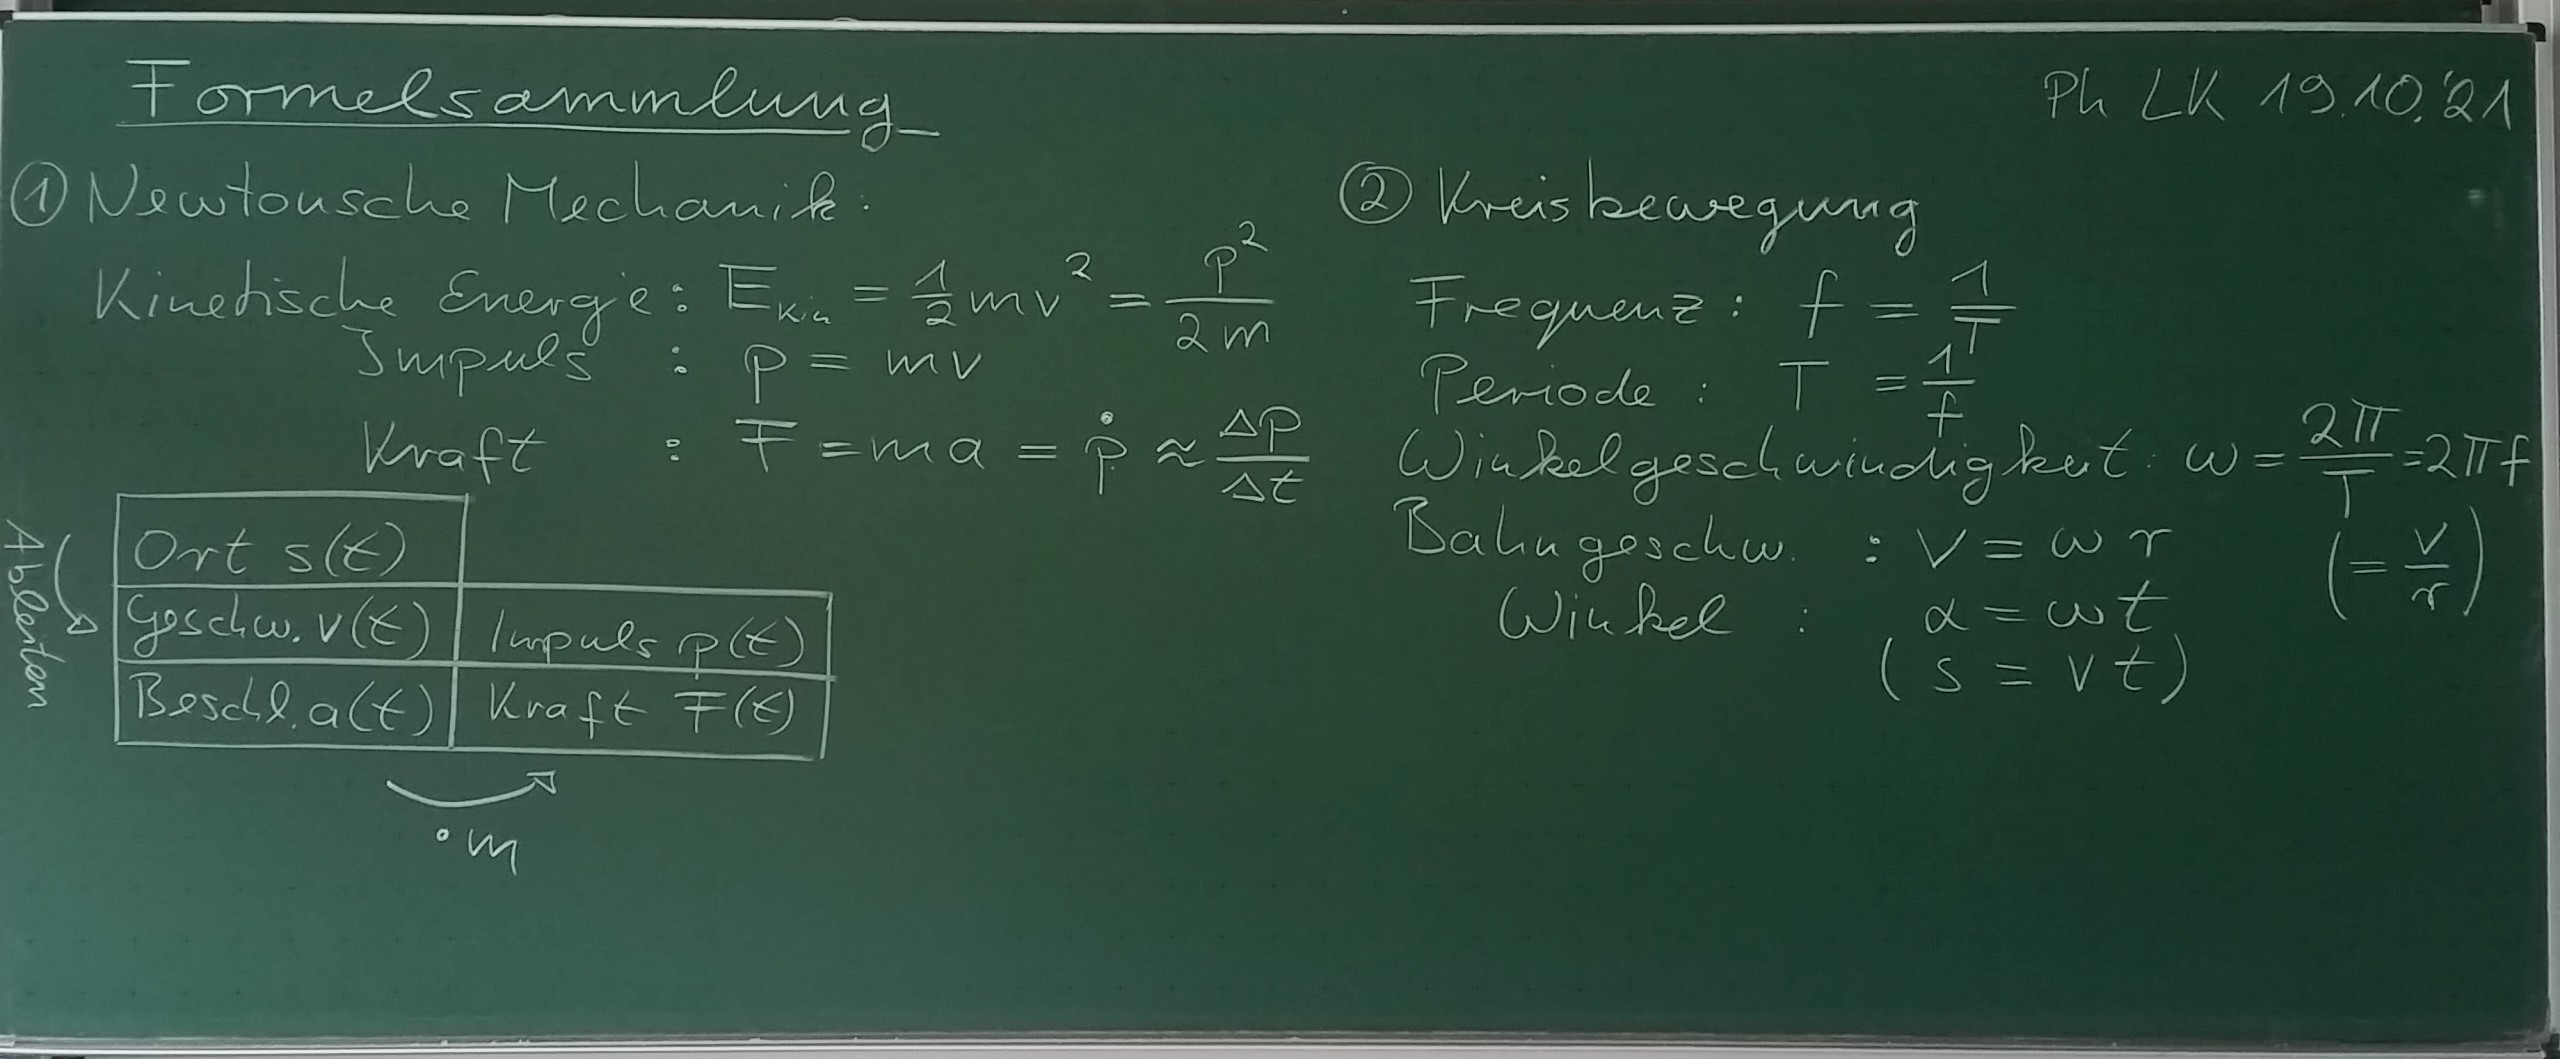 Formelsammlung
Ph LK 19.10.'21
① Newtonsche Mechanik:
Kinetische Energie: E_kin = 1/2 mv² = p²/2m
Impuls : p = mv
Kraft : F = ma = ṗ ≈ Δp/Δt
Ableiten
Ort s(t)
Geschw. v(t) | Impuls p(t)
Beschl. a(t) | Kraft F(t)
·m
② Kreisbewegung
Frequenz: f = 1/T
Periode: T = 1/f
Winkelgeschwindigkeit: ω = 2π/T = 2πf
Bahngeschw. : v = ω r (= v/r)
Winkel : α = ωt
(s = vt)